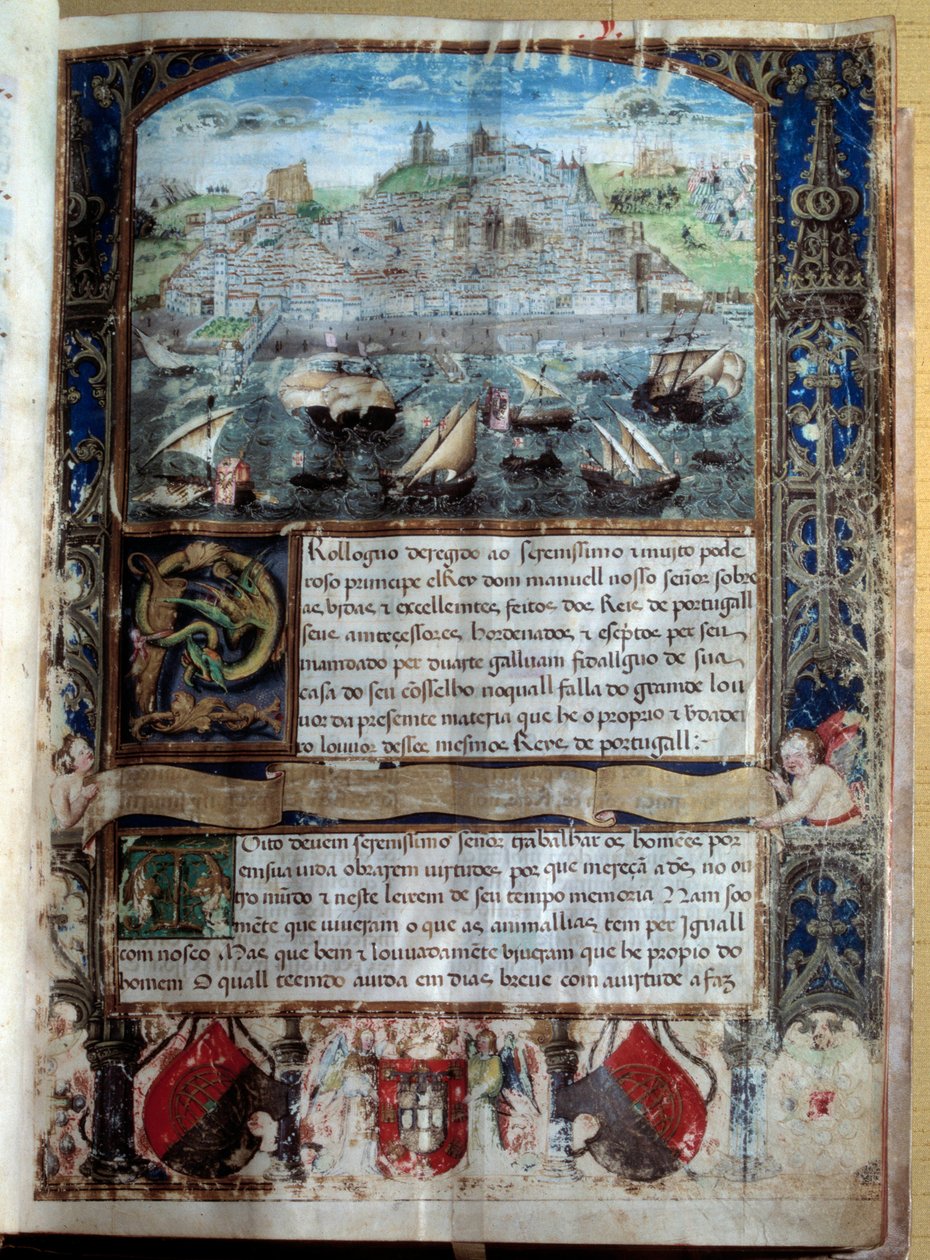 Rollogno deregido ao serenissimo ⁊ muito pode
roso principe elRey dom manuell nosso señor sobre
as vidas ⁊ excellentes feitos dos Reis de portugall
seus antecessores hordenados ⁊ esc̃ptos per seu
mandado per duarte galluam fidallguo de sua
casa do seu cõsselho noquall falla do grande lou
uor da presente materia que he o proprio ⁊ ṽdadei
ro louuor desses mesmos Reys de portugall :~
Muito deuem serenissimo señor trabalhar os homẽes por
em sua uida obrarem uirtudes por que mereçã a ds̃ no ou
tro mũdo ⁊ neste leixem de seu tempo memoria Nam soo
mẽte que uiueram o que as animallias tem per Iguall
com nosco Mas que bem ⁊ louuadamẽte viueram que he propio do
homem O quall teendo auida em dias breue com auirtude a faz